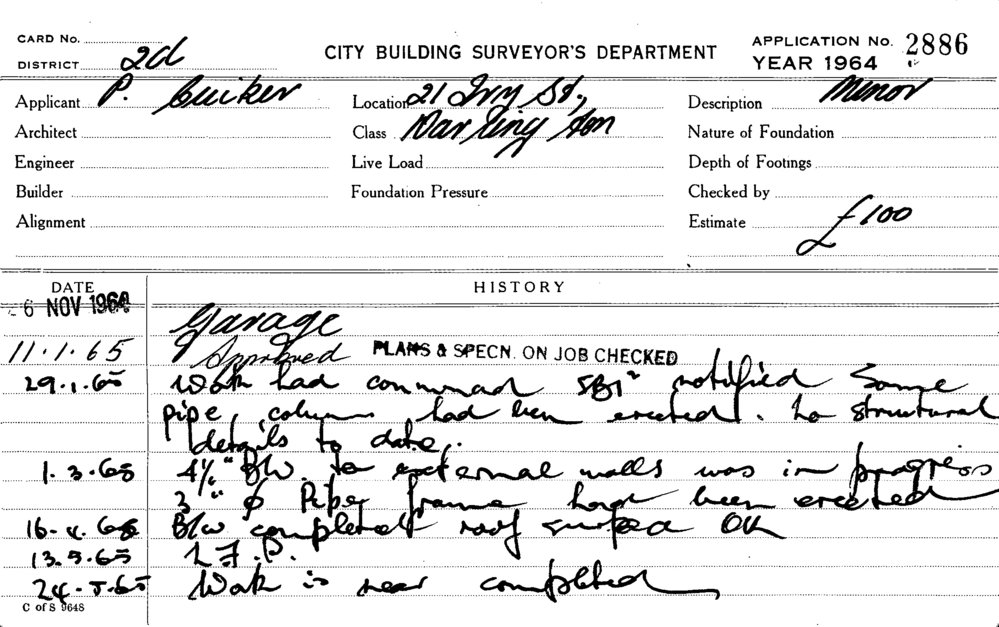 CARD No.
DISTRICT 2d
CITY BUILDING SURVEYOR'S DEPARTMENT
APPLICATION No. 2886
YEAR 1964
Applicant P. Cuiker
Location 21 Ivy St.,
Description Minor
Architect
Class Darlington
Nature of Foundation
Engineer
Live Load
Depth of Footings
Builder
Foundation Pressure
Checked by
Alignment
Estimate £100
DATE
HISTORY
6 NOV 1964
Garage
11.1.65 Approved PLANS & SPECN. ON JOB CHECKED
29.1.65 Work had commenced SBI² notified Some
pipe columns had been erected. No structural
details to date.
1.3.65 4½" BW. to external walls was in progress
3" φ Pipe frame had been erected
16.4.65 B/w completed roof surface OK
13.5.65 L.F.P.
24.5.65 Work is near completed
C of S 9648